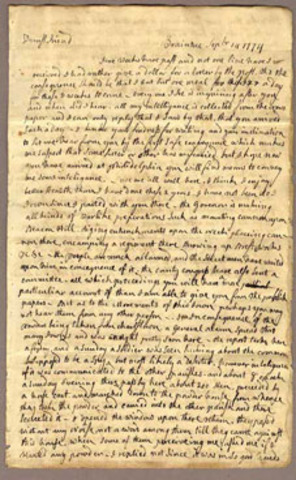 Dearest Friend Braintree Sepbr 14 1774
Five Weeks have past and not one line have I re
ceived. I had rather give a dollar for a letter by the post, tho the
consequence should be that I Eat but one meal a day
for these 3 weeks to come. Every one I see is inquiring after you
and when did I hear. all my intelligence is collected from the news
paper and I can only reply that I saw by that, that you arrived
such a day. I know your fondness for writing and your inclination
to let me hear from you by the first safe conveyance which makes
me suspect that some Letter or other has miscaried, but I hope now
you have arrived at philidelphia you will find means to convey
me some inteligence. we are all well here, I think I enjoy
better Health than I have done these 2 years. I have not been to
Town since I parted with you there. The Governor is making
all kinds of warlike preperations such as mounting cannon upon
Beacon Hill, diging entrenchments upon the neck, placeing can
non there, encamping a regiment there, throwing up Brest Works
&c &c. the people are much alarmed, and the Select men have waited
upon him in consequence of it. the county congress have also sent a
committee, all which proceedings you will have a more
particuliar account of than I am able to give you from the publick
papers. But as to the movements of this Town perhaps you may
not hear them from any other person. In consequence of the
powder being taken from charlstown, a general alarm spread thro
many Towns and was caught pretty soon here. the report took here
a fryday, and a Sunday a soldier was seen lurking about the common
supposed to be a Spy, but most likely a Deserter. however inteligence
of it was communicated to the other parishes, and about 8 o clock
a Sunday Evening there pass by here about 200 Men, preceeded by
a horse cart, and marched down to the powder house from whence
they took the powder, and carried into the other parish and there
secreeted it. I opened the window upon there return. they pass'd
without any Noise, not a word among them till they came against
this house, when some of them perceiveing me, askd me if I
wanted any powder. I replied not since it was in so good hands